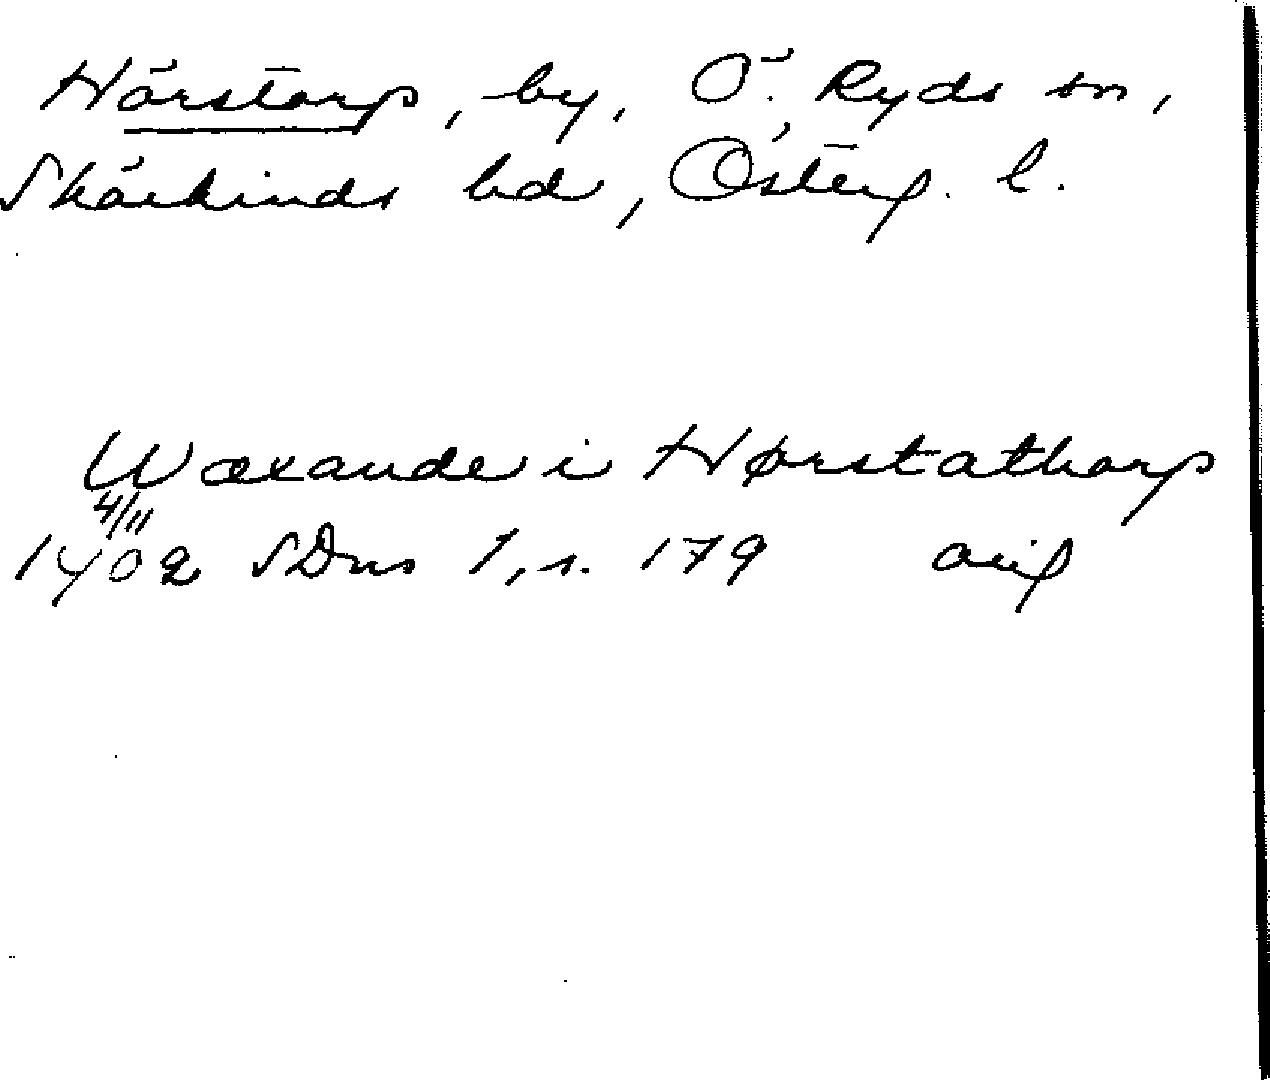 Hörstorp, by, Ö. Ryds sn,
Skärkinds hd, Österg. l.
Wæxande i Hørstathorp
4/11
1402 SDns 1, s. 179 orig